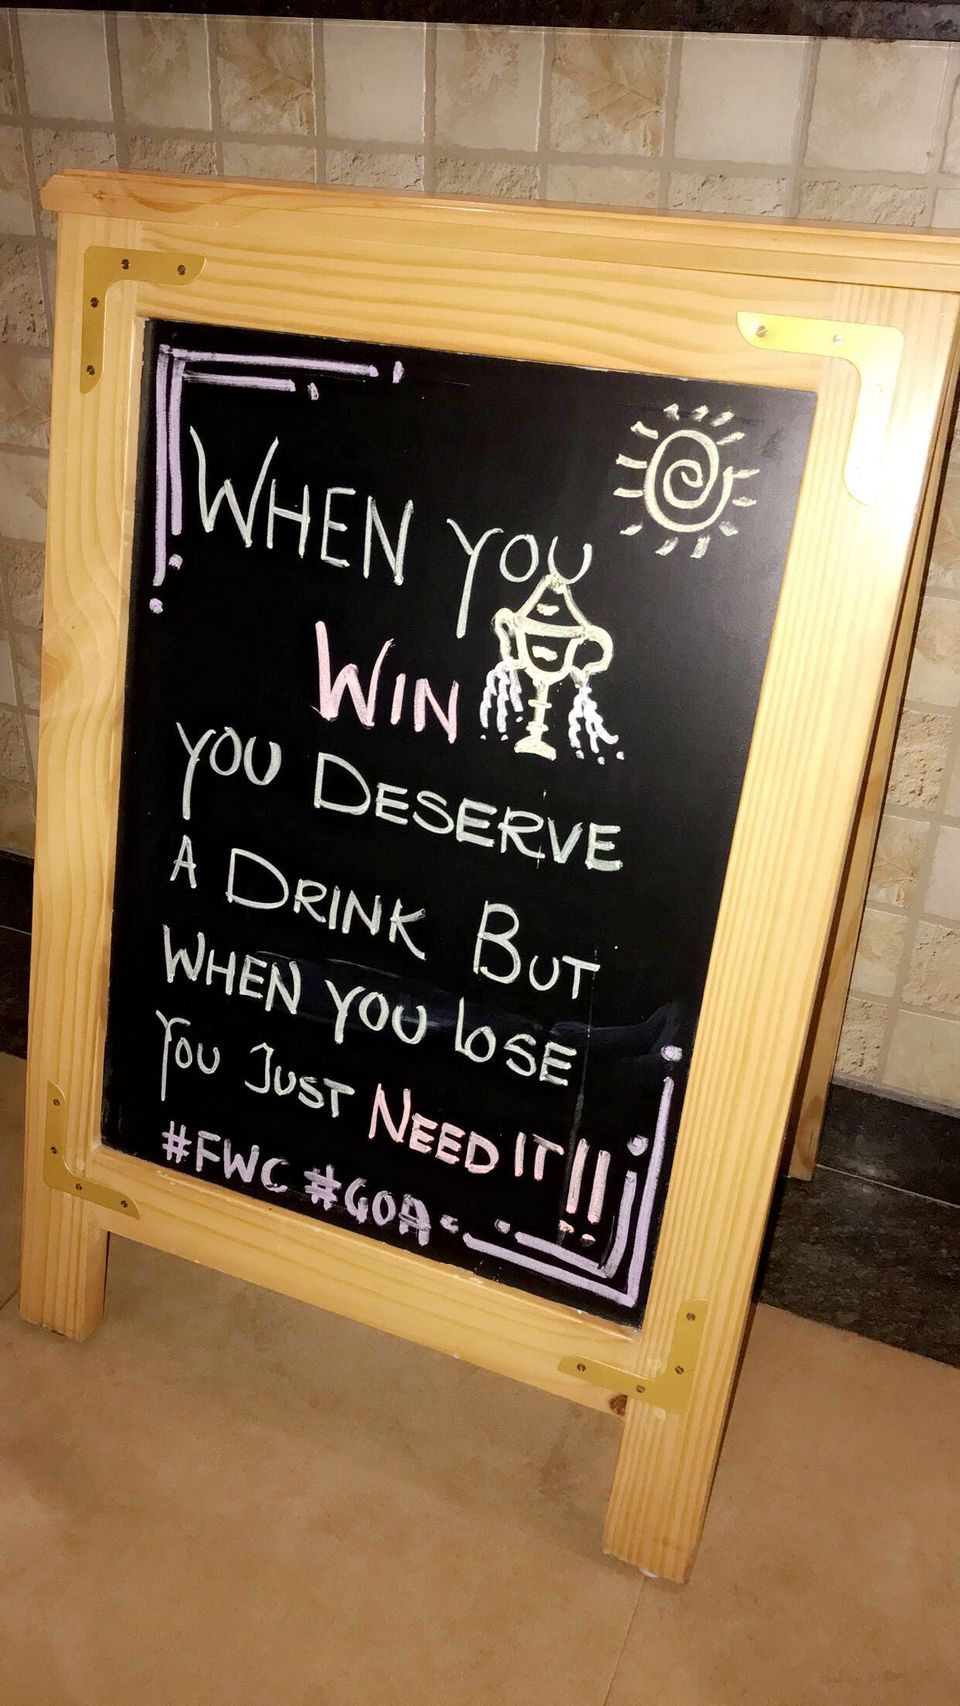 WHEN YOU
WIN
YOU DESERVE
A DRINK BUT
WHEN YOU LOSE
YOU JUST NEED IT!!
#FWC #GOA